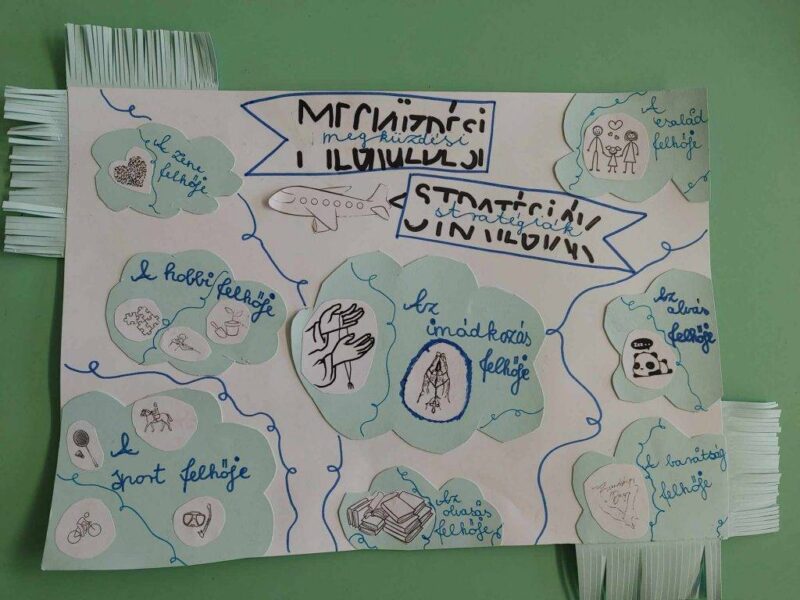 megküzdési
stratégiák
A
család
felhője
A zene
felhője
A hobbi felhője
Az
imádkozás
felhője
Az
alvás
felhője
Zzz...
A
sport felhője
Az
olvasás
felhője
A barátság
felhője